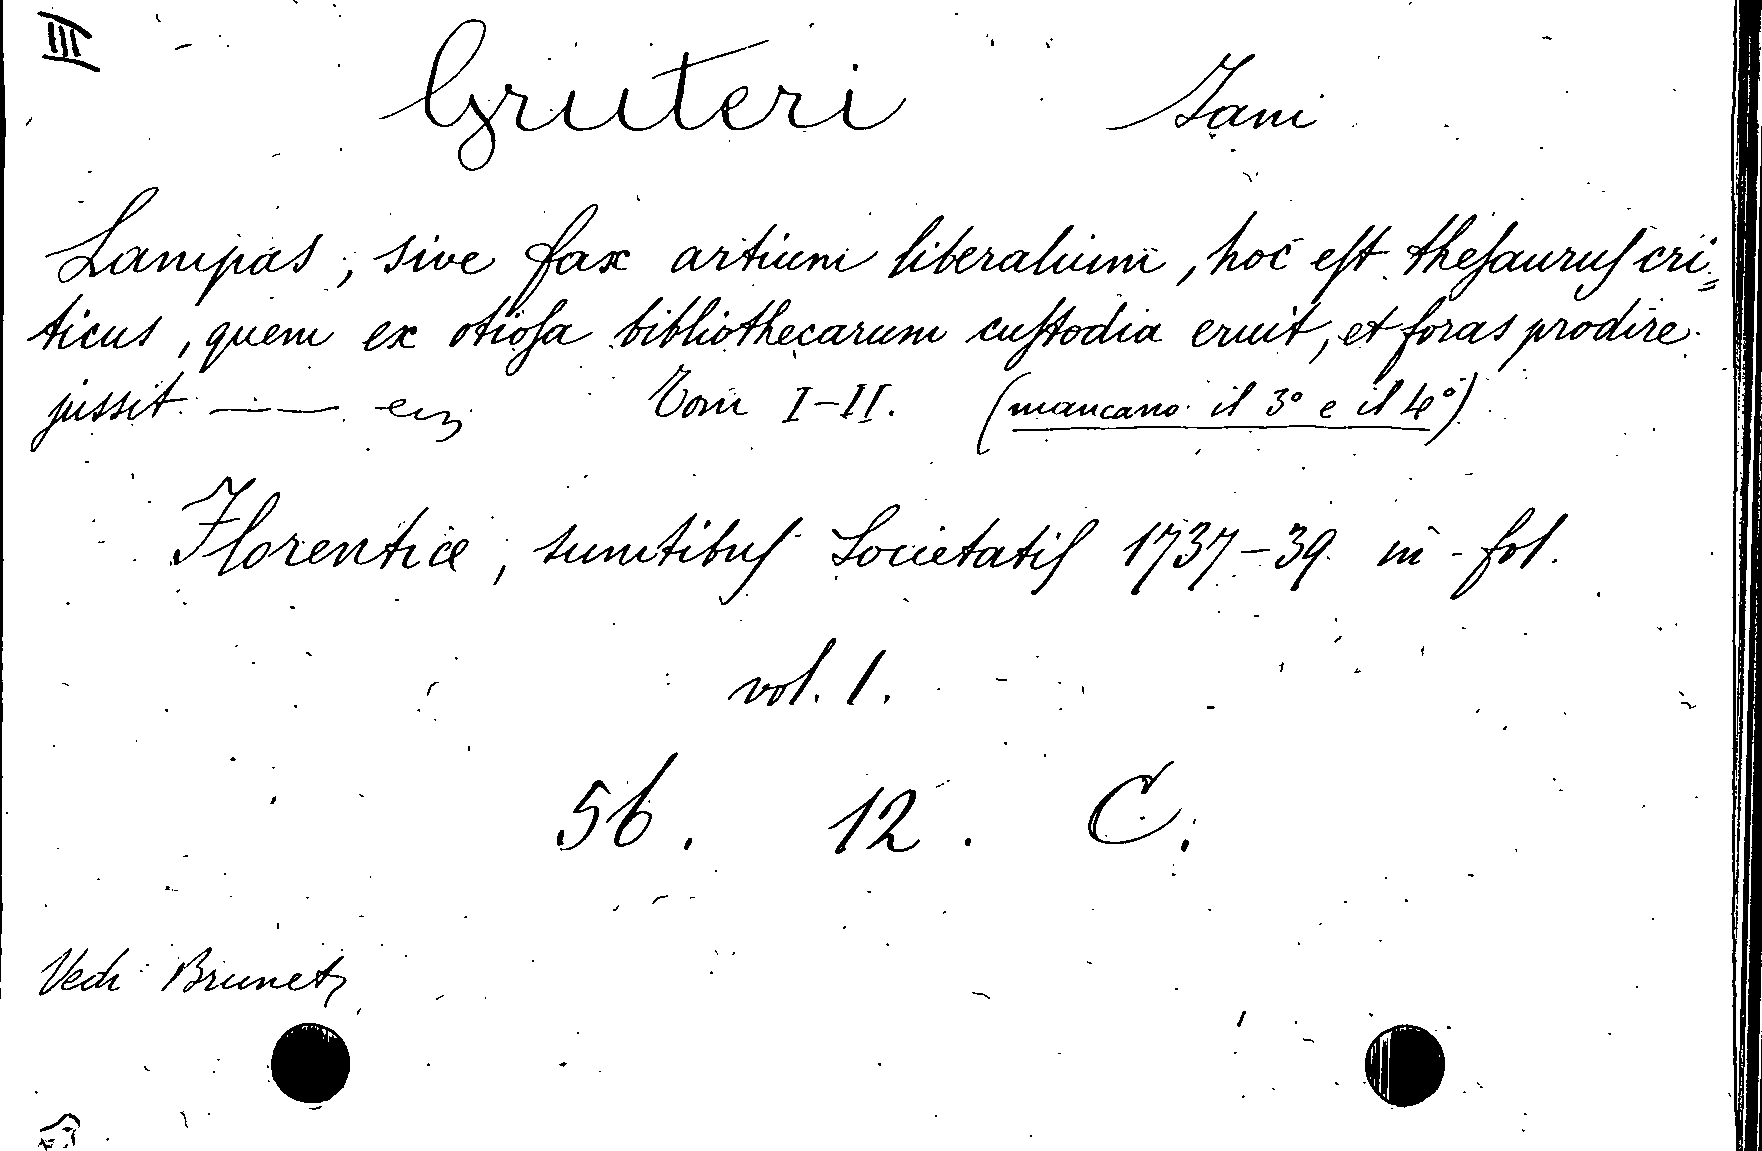 III
Gruteri Jani
Lampas, sive fax artium liberalium, hoc eſt theſauruſ cri=
ticus, quem ex otioſa bibliothecarum cuſtodia eruit, et foras prodire
jussit —— ecc Tom I-II. (mancano il 3° e il 4°)
Florentiæ, sumtibuſ Societatiſ 1737-39 in-fol.
vol. 1.
56. 12. C.
Vedi Brunet